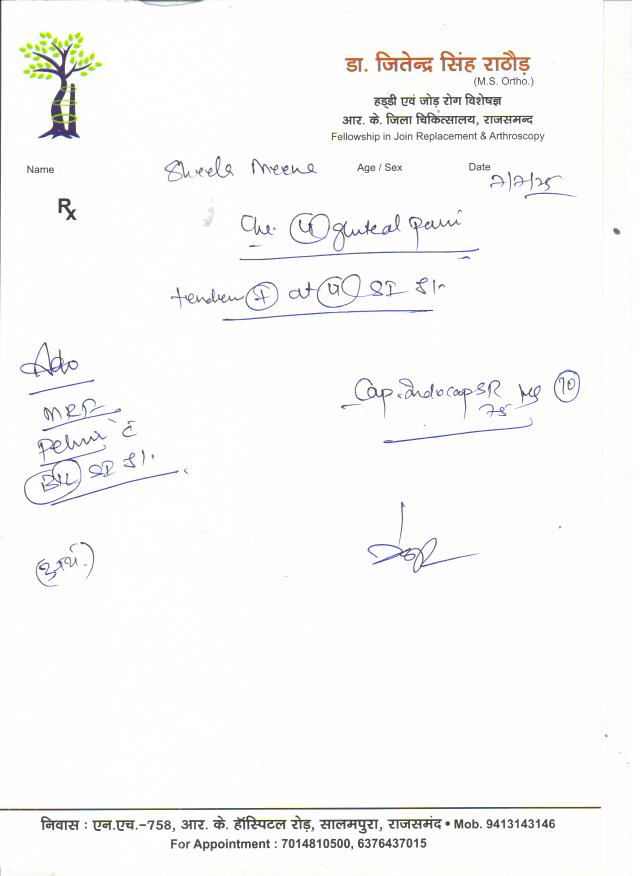 डा. जितेन्द्र सिंह राठौड़
(M.S. Ortho.)
हड्डी एवं जोड़ रोग विशेषज्ञ
आर. के. जिला चिकित्सालय, राजसमन्द
Fellowship in Join Replacement & Arthroscopy
Name Sheela Meena Age / Sex Date 7/7/25
Rx
gluteal pain
at SI
Adv
MRI
Cap. Indocap SR 75 mg 10
Pelvis
SI
निवास : एन.एच.-758, आर. के. हॉस्पिटल रोड़, सालमपुरा, राजसमंद • Mob. 9413143146
For Appointment : 7014810500, 6376437015